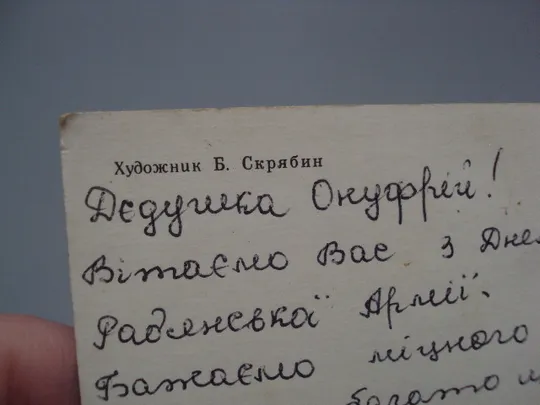 Художник Б. Скрябин
Дєдушка Онуфрій!
Вітаємо Вас з Днем
Радянської Армії.
Бажаємо міцного
богато